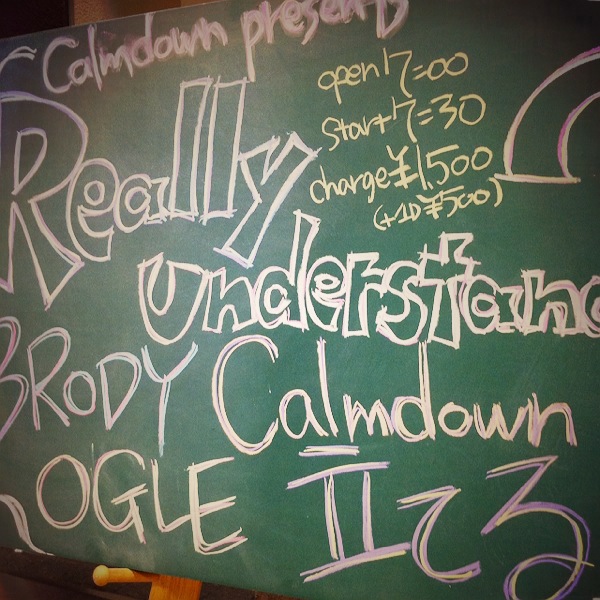 Calmdown presents
Really
open17:00
Start17:30
charge¥1,500
(+1D¥500)
Understand
BRODY Calmdown
OGLE IIてる